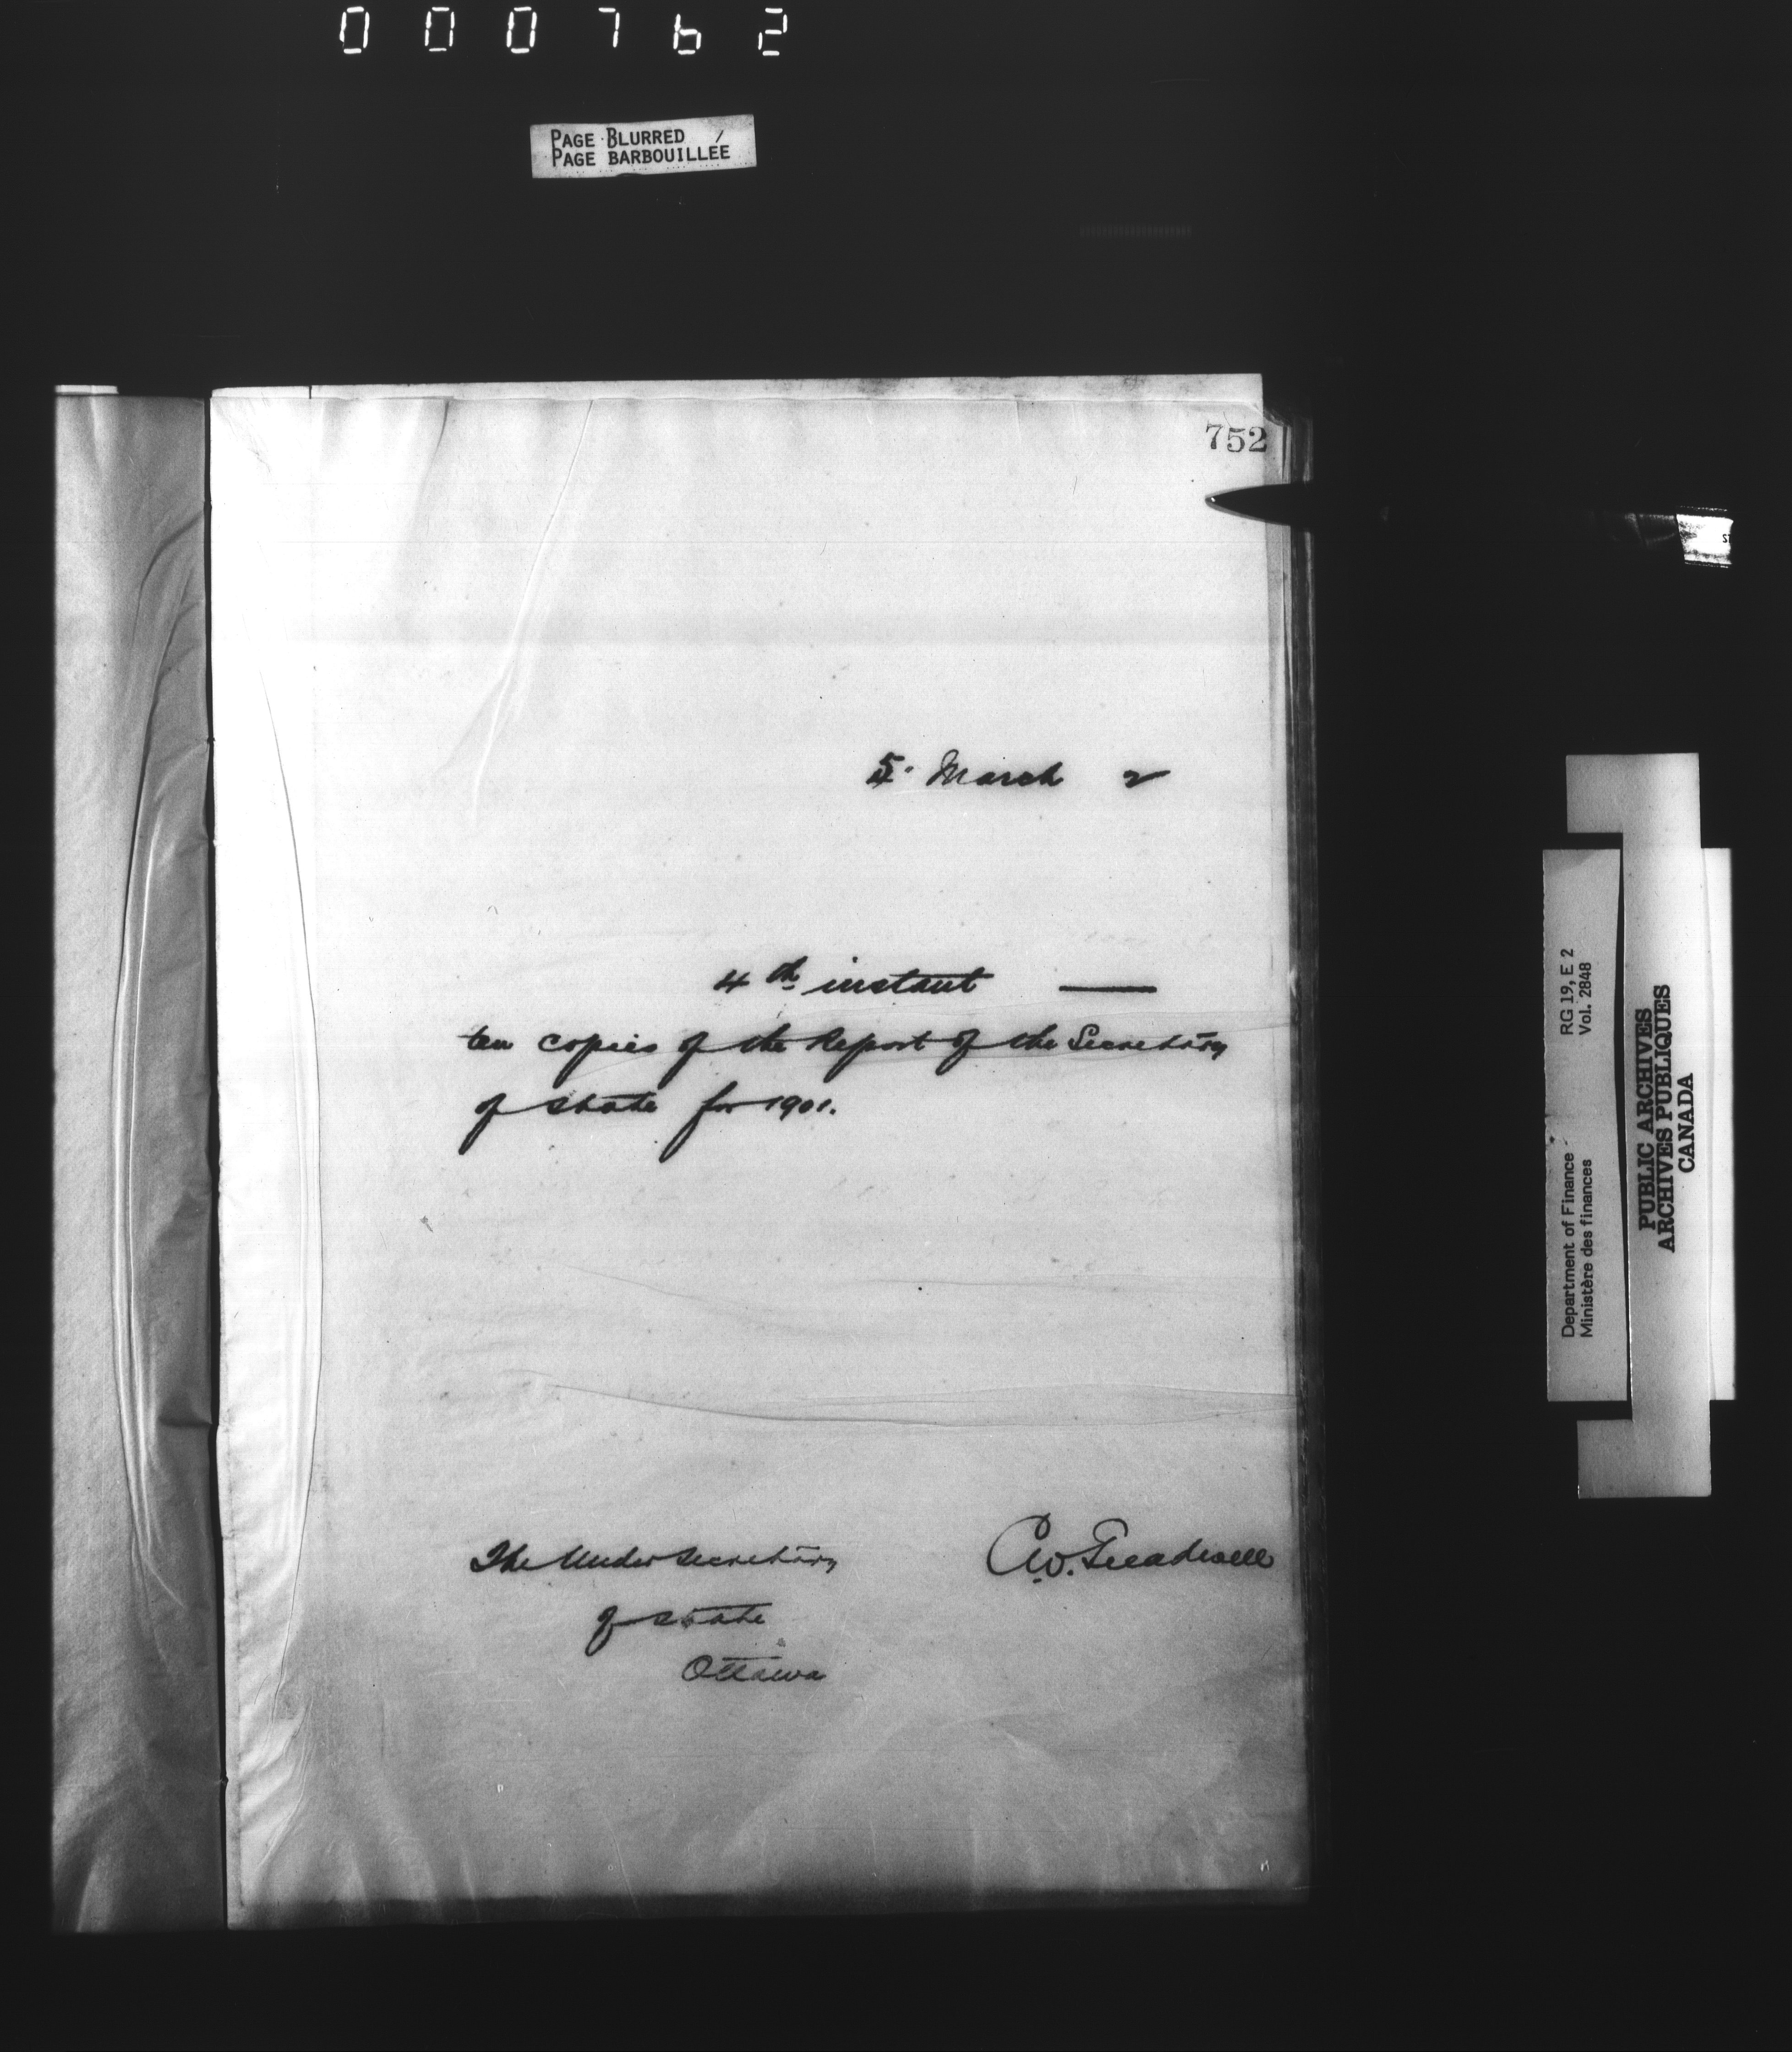 000762
PAGE BLURRED
PAGE BARBOUILLÉE
752
5. March 2
4th instant —
ten copies of the Report of the Secretary
of State for 1901.
The Under Secretary
of State
Ottawa
C.W. Treadwell
RG 19, E 2
Vol. 2848
Department of Finance
Ministère des finances
PUBLIC ARCHIVES
ARCHIVES PUBLIQUES
CANADA